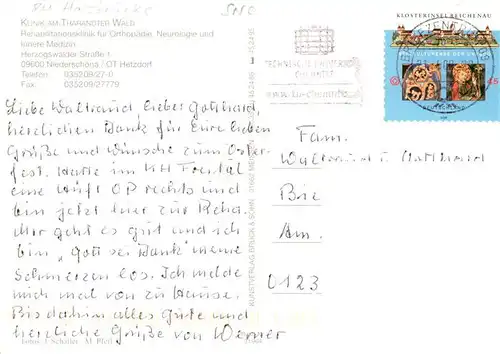 KLINIK AM THARANDTER WALD
Rehabilitationsklinik für Orthopädie, Neurologie und
Innere Medizin
Herzogswalder Straße 1
09600 Niederschöna / OT Hetzdorf
Telefon: 035209/27-0
Fax: 035209/27779
Liebe Waltraud, lieber Gotthard,
herzlichen Dank für Eure lieben
Grüße und Wünsche zum Oster-
fest. Hatte im KH Freital
eine Hüft OP rechts und
bin jetzt hier zur Reha.
Mir geht es gut und ich
bin "Gott sei Dank" meine
Schmerzen los. Ich melde
mich mal von zu Hause.
Bis dahin alles Gute und
herzliche Grüße von Werner
Fotos: J. Schiller M. Pfeil
KLOSTERINSEL REICHENAU
DEUTSCHLAND
BRIEFZENTRUM 09
Fam.
Waltraud u. Gotthard
Bie
Am.
0123